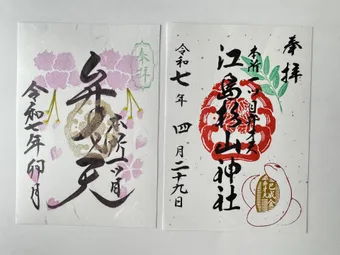 奉拝
本所一ツ目
弁天
令和七年卯月
奉拝
本所一ツ目弁才天
江島杉山神社
令和七年 四月二十九日